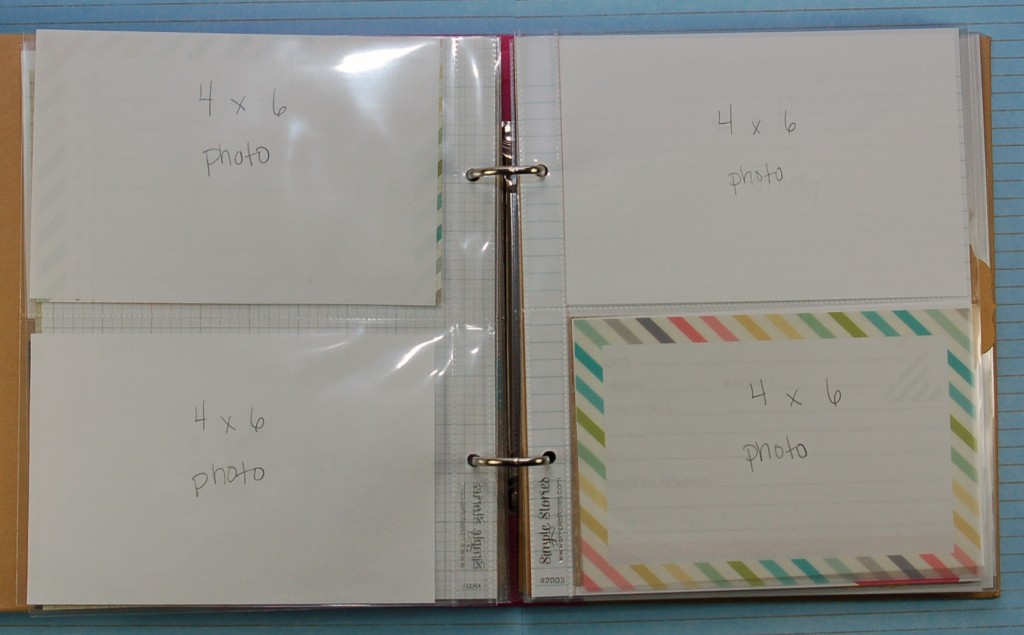 4 x 6
photo
4 x 6
photo
4 x 6
photo
4 x 6
photo
Simple Stories
Simple Stories
#2003